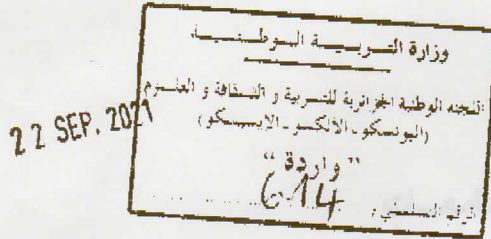 وزارة التربية الوطنية
اللجنة الوطنية الجزائرية للتربية و الثقافة و العلوم
(اليونسكو - الألكسو - الإيسيسكو)
22 SEP. 2021
" واردة "
الرقم التسلسلي : 614